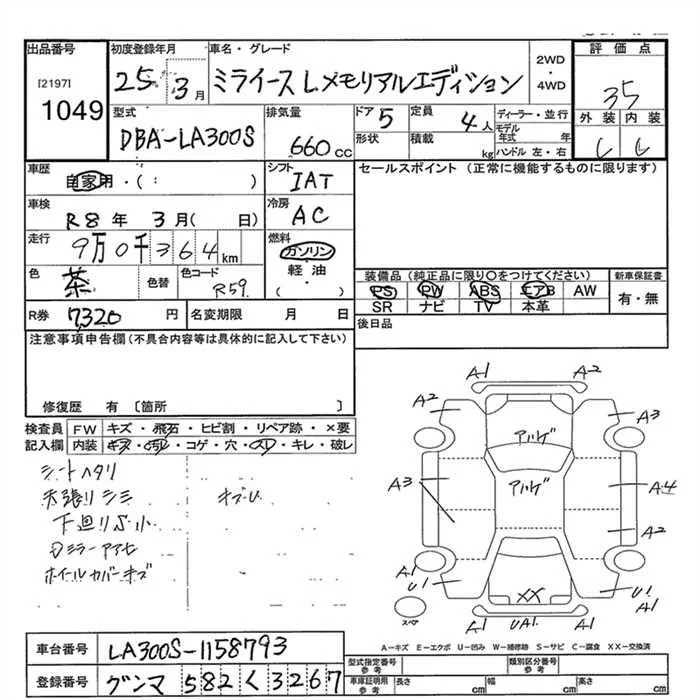 出品番号 初度登録年月 車名・グレード 2WD・4WD 評価点
[2197] 1049 25年 3月 ミライース Lメモリアルエディション 35
型式 DBA-LA300S 排気量 660cc ドア 5 定員 4人 ディーラー・並行 外装 内装
形状 積載 kg モデル年式 年 ハンドル 左・右
車歴 自家用・( : ) シフト IAT セールスポイント (正常に機能するものに限ります)
車検 R8年 3月( 日) 冷房 AC
走行 9万0千364km 燃料 ガソリン 軽油 ( )
色 茶 色替 色コード R59
装備品 (純正品に限り〇をつけてください) 新車保証書
PS PW ABS エアB AW 有・無
SR ナビ TV 本革
R券 7320円 名変期限 月 日 後日品
注意事項申告欄 (不具合内容等は具体的に記入して下さい)
修復歴 有 〔箇所 〕
検査員 FW キズ・飛石・ヒビ割・リペア跡・×要
記入欄 内装 キズ・汚レ・コゲ・穴・スレ・キレ・破レ
シートヘタリ
天張リシミ
下廻リS小
Dミラーアアセ
ホイールカバーキズ
A1 A2
A2 A3
アハゲ
アハゲ
A3 A4
A2
A1 U1 XX U1 A1
スペア UA1
A−キズ E−エクボ U−凹み W−補修跡 S−サビ C−腐食 XX−交換済
車台番号 LA300S-1158793
型式指定番号 参考 類別区分番号 参考
登録番号 グンマ 582く3267
車体証明書 参考 長さ cm 幅 cm 高さ cm